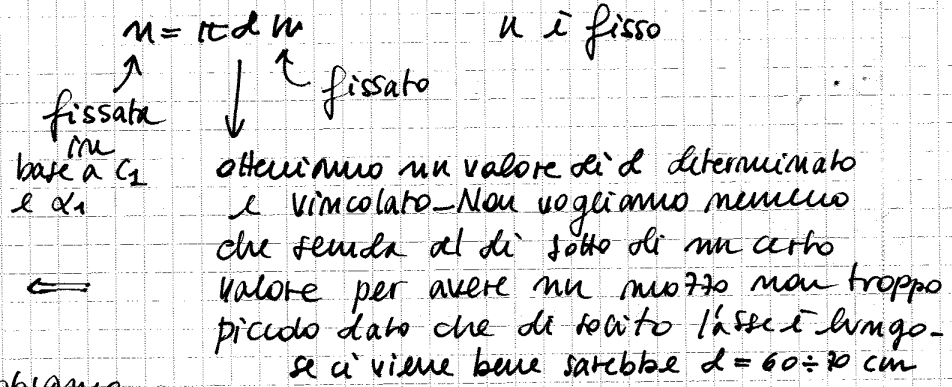 u = πdn n è fisso
fissata fissato
in
base a c1 ottieniamo un valore di d determinato
e α1 e vincolato_Non vogliamo nemmeno
che scenda al di sotto di un certo
valore per avere un mozzo non troppo
piccolo dato che di solito l'asse è lungo_
se ci viene bene sarebbe d = 60÷70 cm